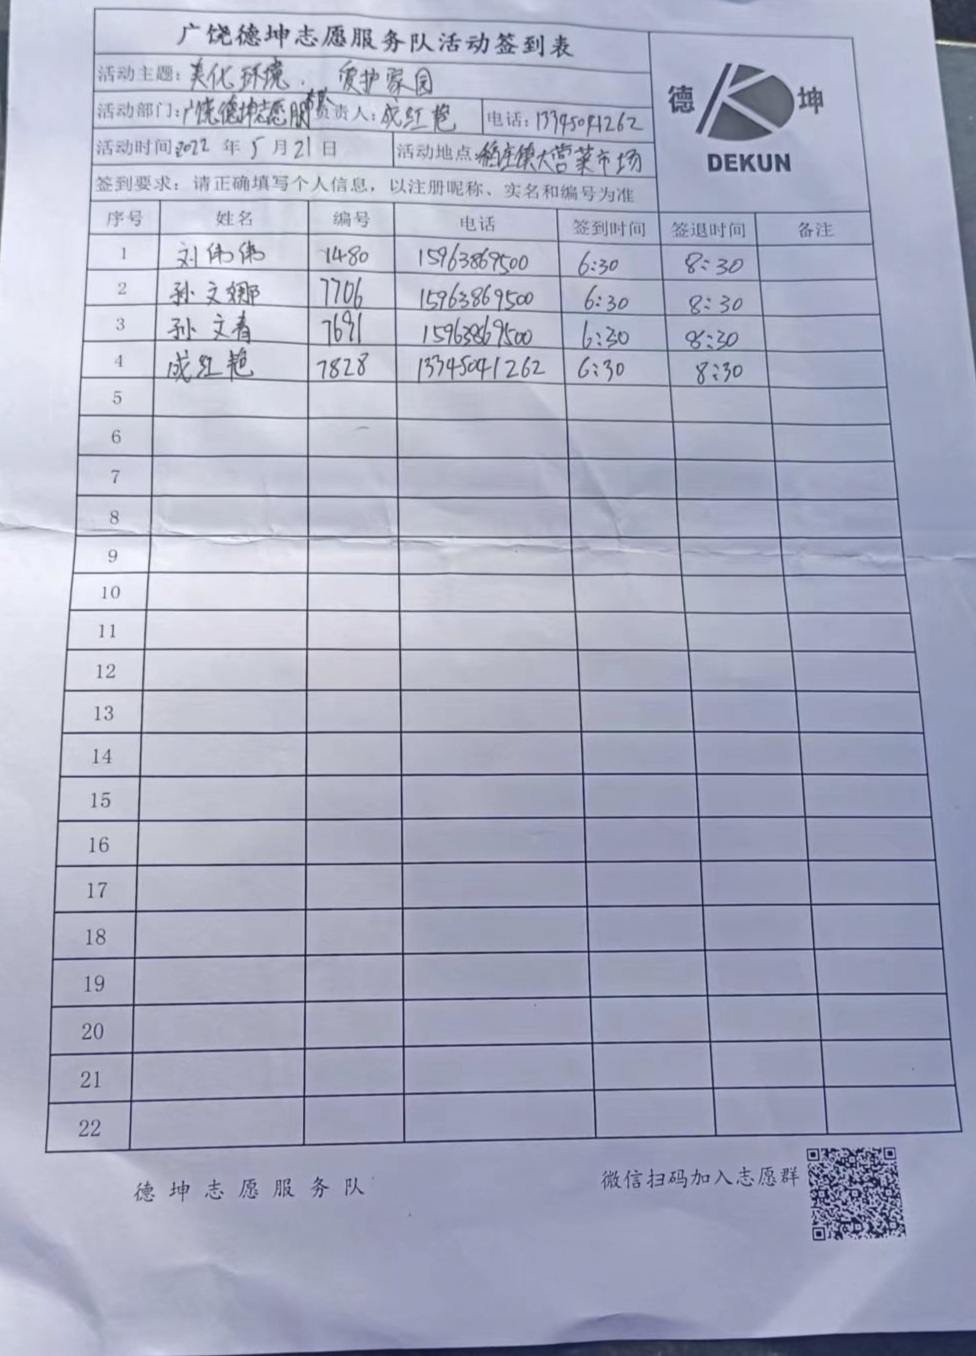 广饶德坤志愿服务队活动签到表
活动主题：美化环境、爱护家园
德 坤
DEKUN
活动部门：广饶德坤志愿服务队 负责人：成红艳 电话：13345041262
活动时间 2022 年 5 月 21 日 活动地点：稻庄镇大营菜市场
签到要求：请正确填写个人信息，以注册昵称、实名和编号为准
序号 姓名 编号 电话 签到时间 签退时间 备注
1 刘伟伟 1480 15963869500 6:30 8:30
2 孙文娜 7706 15963869500 6:30 8:30
3 孙文春 7691 15963869500 6:30 8:30
4 成红艳 7828 13345041262 6:30 8:30
5
6
7
8
9
10
11
12
13
14
15
16
17
18
19
20
21
22
德坤志愿服务队
微信扫码加入志愿群